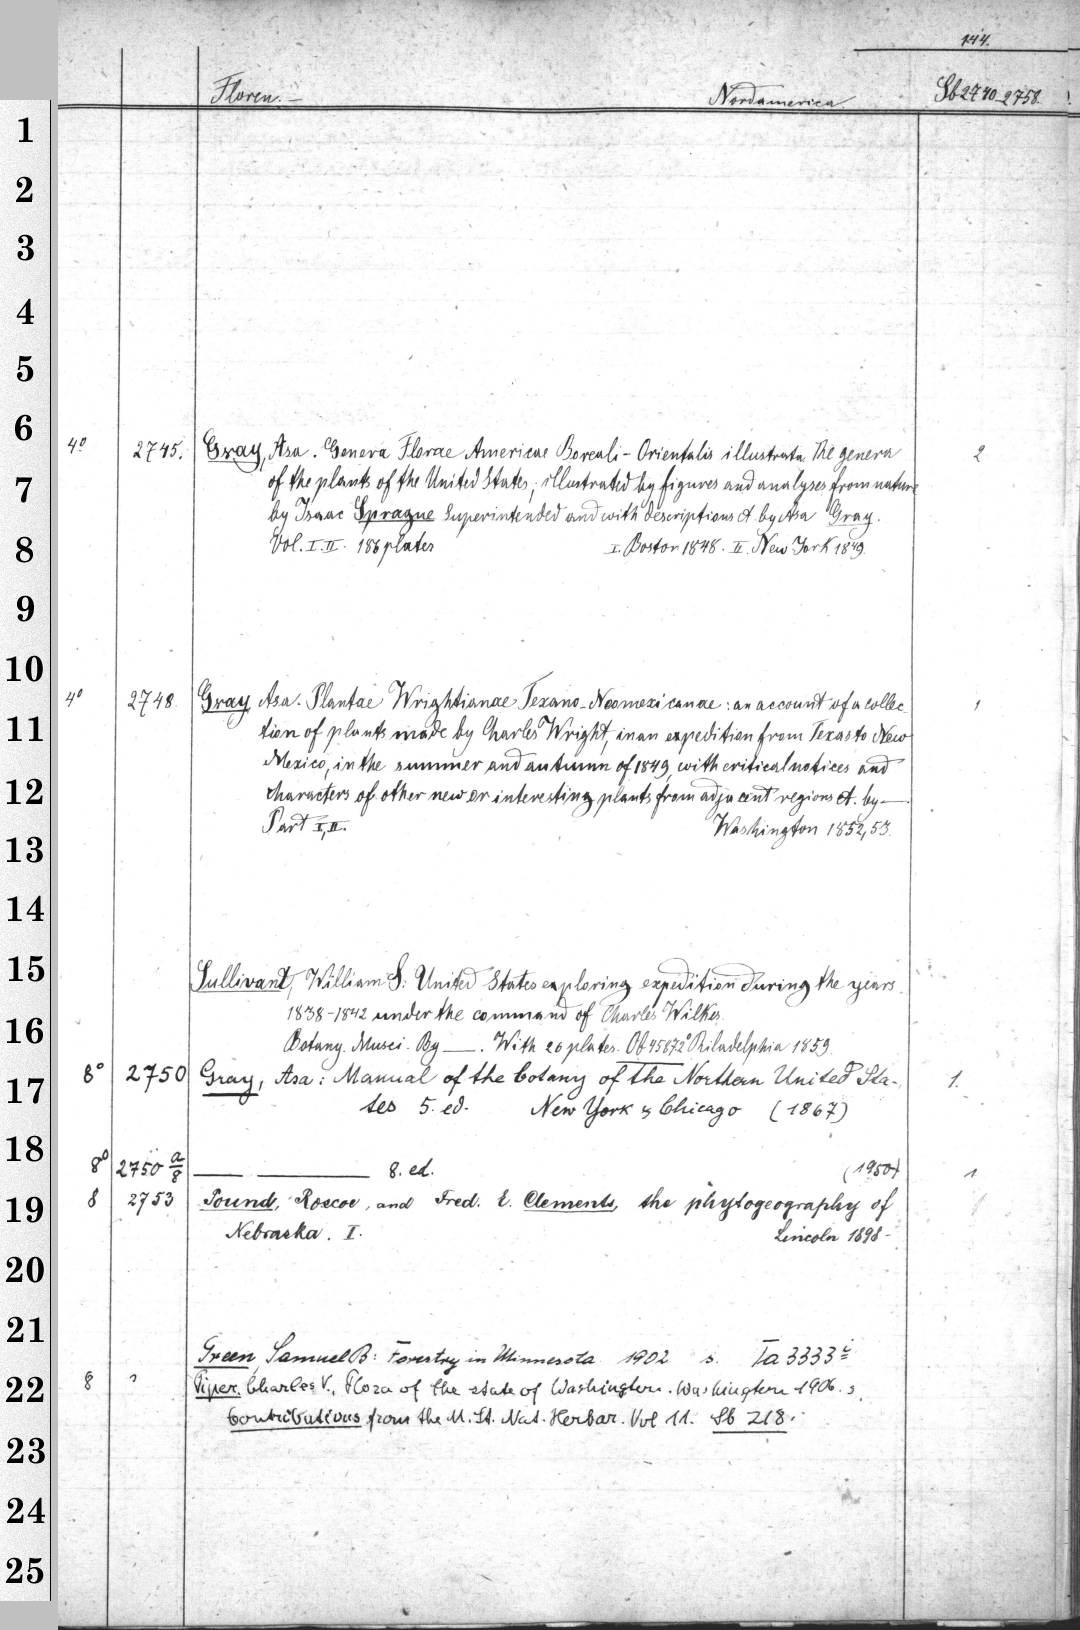 144.
Floren. – Nordamerica Sb 2740-2758
1
2
3
4
5
6
4° 2745. Gray, Asa. Genera Florae Americae Boreali-Orientalis illustrata The genera 2
7 of the plants of the United States; illustrated by figures and analyses from nature
by Isaac Sprague Superintended and with descriptions et. by Asa Gray.
8 Vol. I. II. 186 plates I. Boston 1848. II. New York 1849.
9
10
4° 2748 Gray Asa. Plantae Wrightianae Texano-Neomexicanae: an account of a collec- 1
11 tion of plants made by Charles Wright, in an expedition from Texas to New
Mexico, in the summer and autumn of 1849, with critical notices and
12 characters of other new or interesting plants from adjacent regions et. by —
Part I, II. Washington 1852, 53.
13
14
15 Sullivant, William S: United States exploring expedition during the years
1838-1842 under the command of Charles Wilkes.
16 Botany. Musci. By —. With 26 plates. Ob 4587 2° Philadelphia 1859.
17 8° 2750 Gray, Asa: Manual of the botany of the Northern United Sta- 1.
tes 5. ed. New York & Chicago (1867)
18
8° 2750 a/8 — — 8. ed. (1950) 1
19 8 2753 Pound, Roscoe, and Fred. E. Clements, the phytogeography of
Nebraska. I. Lincoln 1898-
20
21
Green, Samuel B: Forestry in Minnesota 1902 s. Ta 3333
22 8 ? Piper, Charles V., Flora of the state of Washington. Washington 1906. s.
Contributions from the U. St. Nat. Herbar. Vol 11. Sb 218.
23
24
25